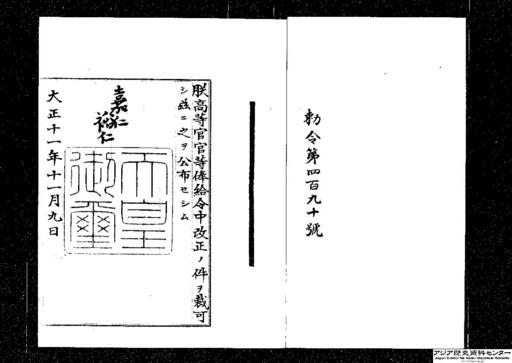 勅令第四百九十號
朕高等官官等俸給令中改正ノ件ヲ裁可
シ茲ニ之ヲ公布セシム
嘉仁
裕仁
天皇御璽
大正十一年十一月九日
アジア歴史資料センター
Japan Center for Asian Historical Records